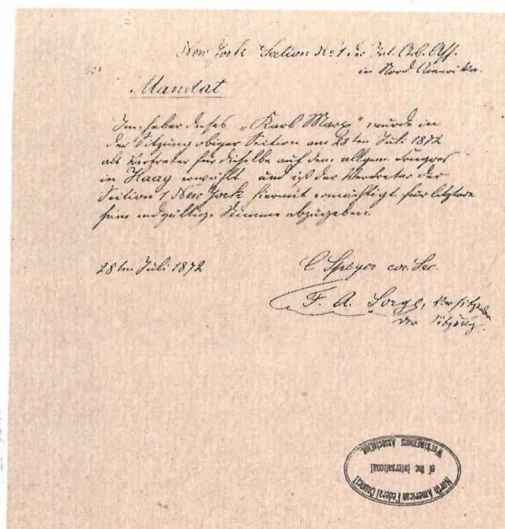 New York Section No 1 der Int. Arb. Ass.
in Nord Amerika.
Mandat
Inhaber dieses „Karl Marx“ wurde in
der Sitzung obiger Section am 28ten Juli 1872
als Vertreter für dieselbe auf dem allgem. Congress
in Haag erwählt und ist der Vertreter der
Section 1, New York hiermit ermächtigt für letztere
seine endgültige Stimme abzugeben.
28ten Juli 1872
C Speyer cor. Sec.
F. A. Sorge, Vorsitzender
der Sitzung.
North American Federal Council
of the International
Workingmens Association